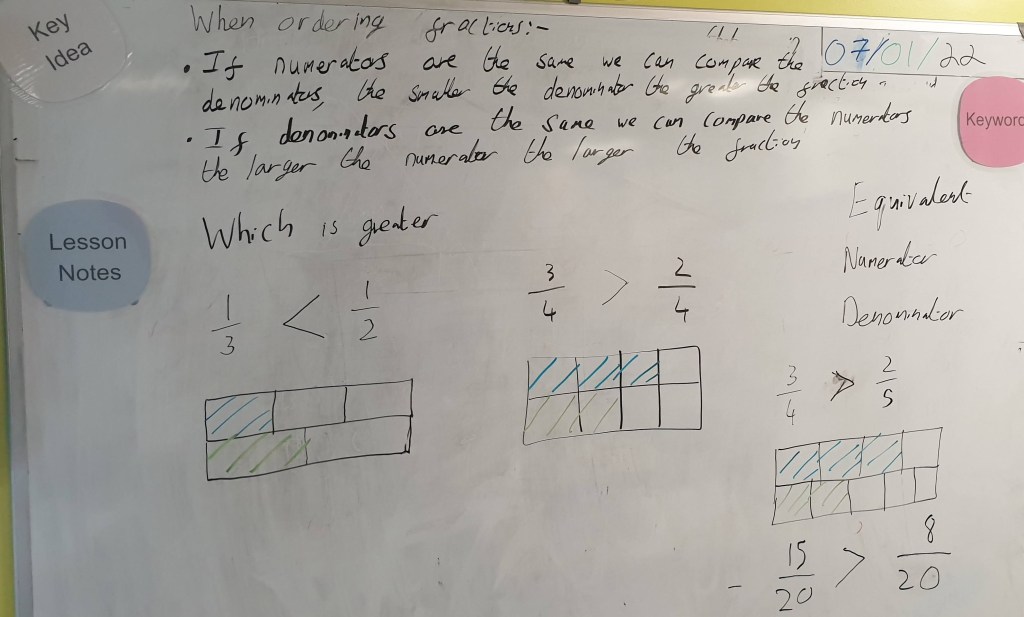 Key
Idea
When ordering fractions:-
07/01/22
• If numerators are the same we can compare the
denominators, the smaller the denominator the greater the fraction
• If denominators are the same we can compare the numerators
the larger the numerator the larger the fraction
Keyword
Equivalent
Numerator
Denominator
Lesson
Notes
Which is greater
1/3 < 1/2
3/4 > 2/4
3/4 > 2/5
15/20 > 8/20